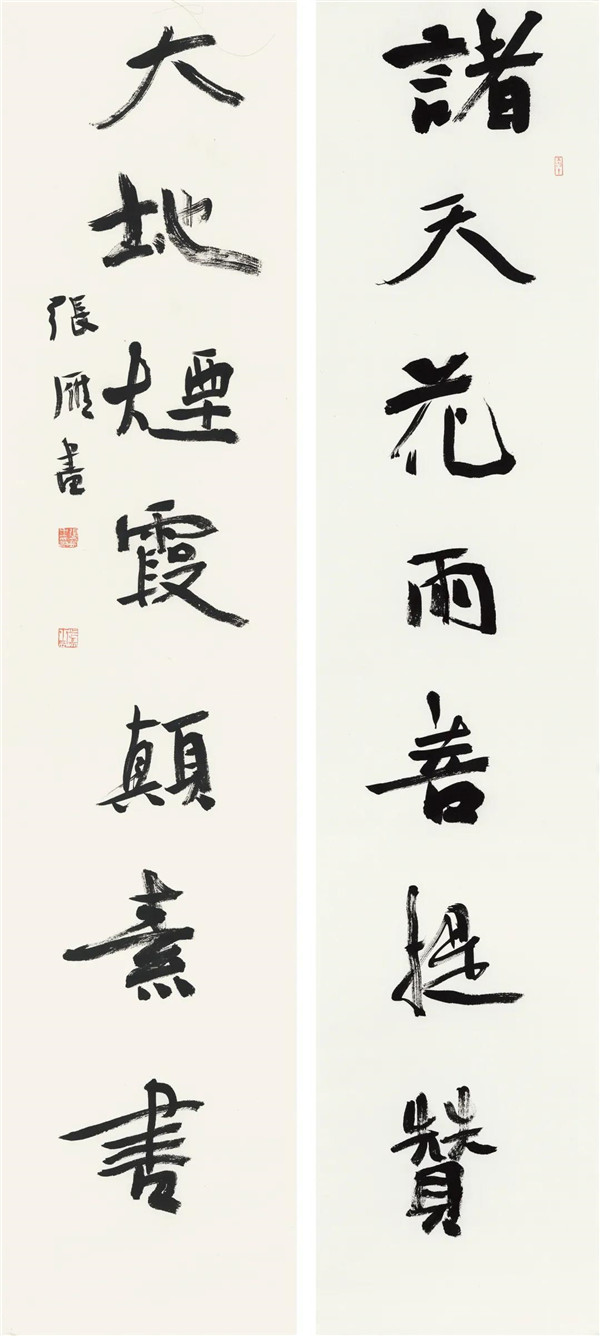 諸天花雨菩提贊
大地煙霞顛素書
張雁書